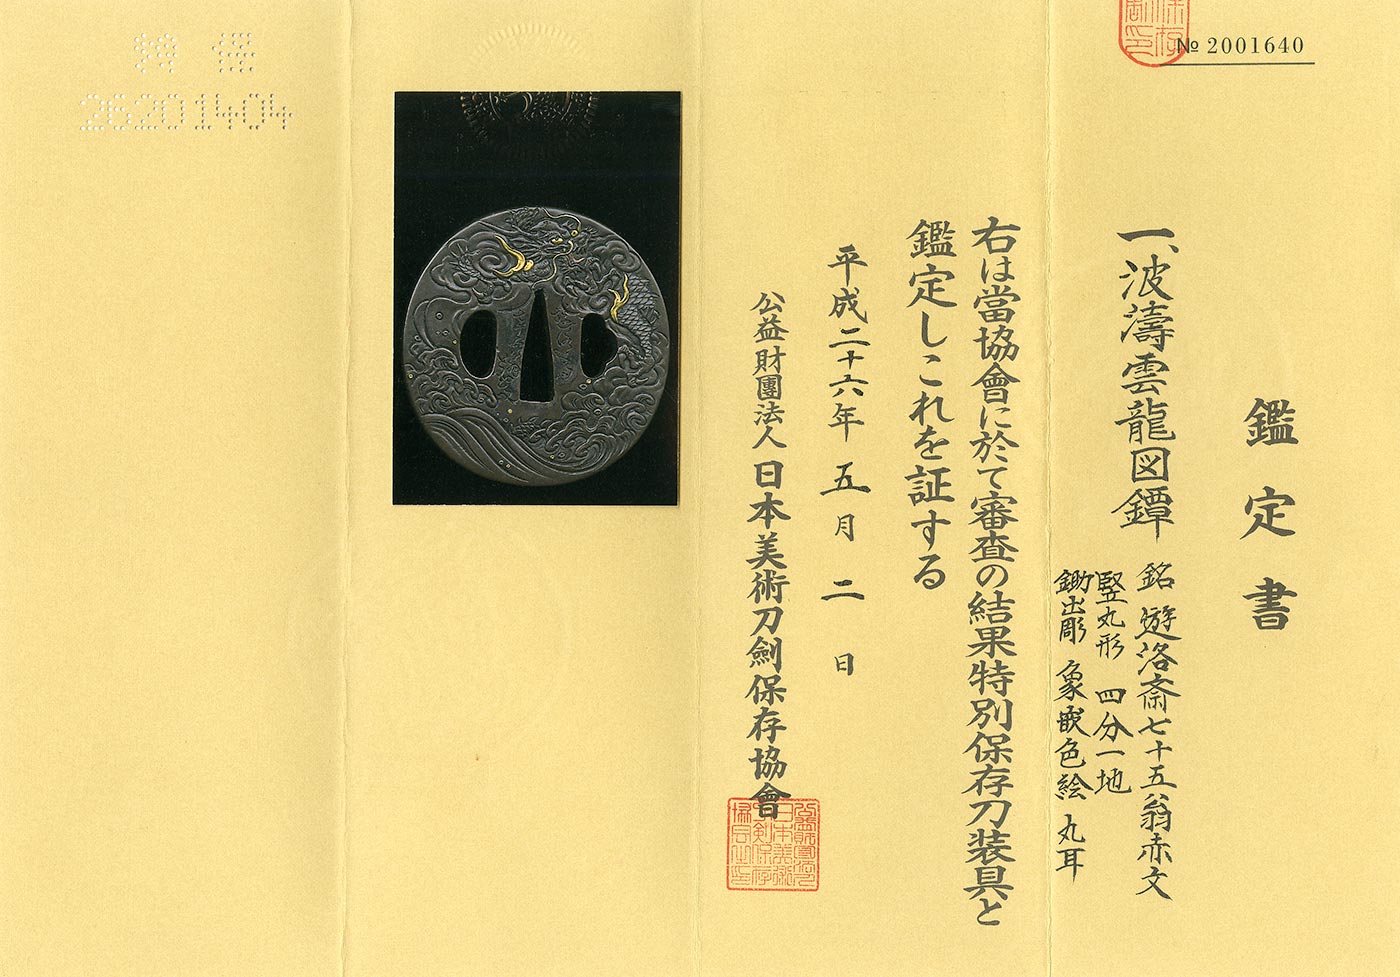 № 2001640
鑑定書
一、波濤雲龍図鐔
銘 遊洛斎七十五翁赤文
竪丸形 四分一地
鋤出彫 象嵌色絵 丸耳
右は當協會に於て審査の結果特別保存刀装具と
鑑定しこれを証する
平成二十六年 五月 二日
公益財團法人 日本美術刀劍保存協會
26201404